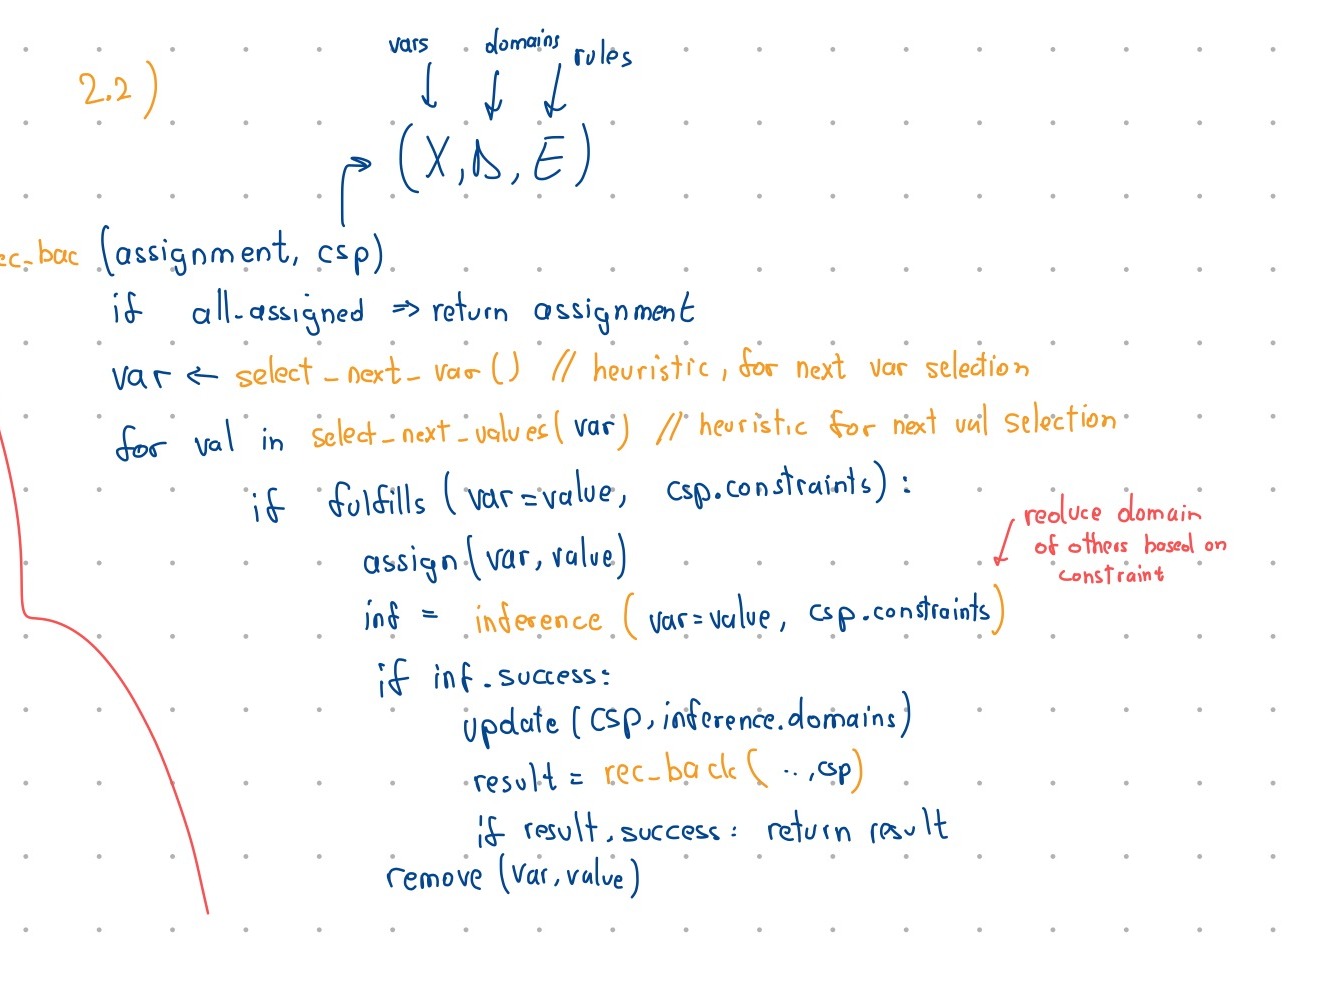 vars domains rules
2.2)
(X, D, E)
ec_bac (assignment, csp)
if all_assigned => return assignment
var ← select_next_var() // heuristic, for next var selection
for val in select_next_values(var) // heuristic for next val selection
if fulfills (var=value, csp.constraints):
reduce domain
of others based on
constraint
assign(var, value)
inf = inference (var=value, csp.constraints)
if inf.success:
update (csp, inference.domains)
result = rec_back( .., csp)
if result.success: return result
remove (var, value)